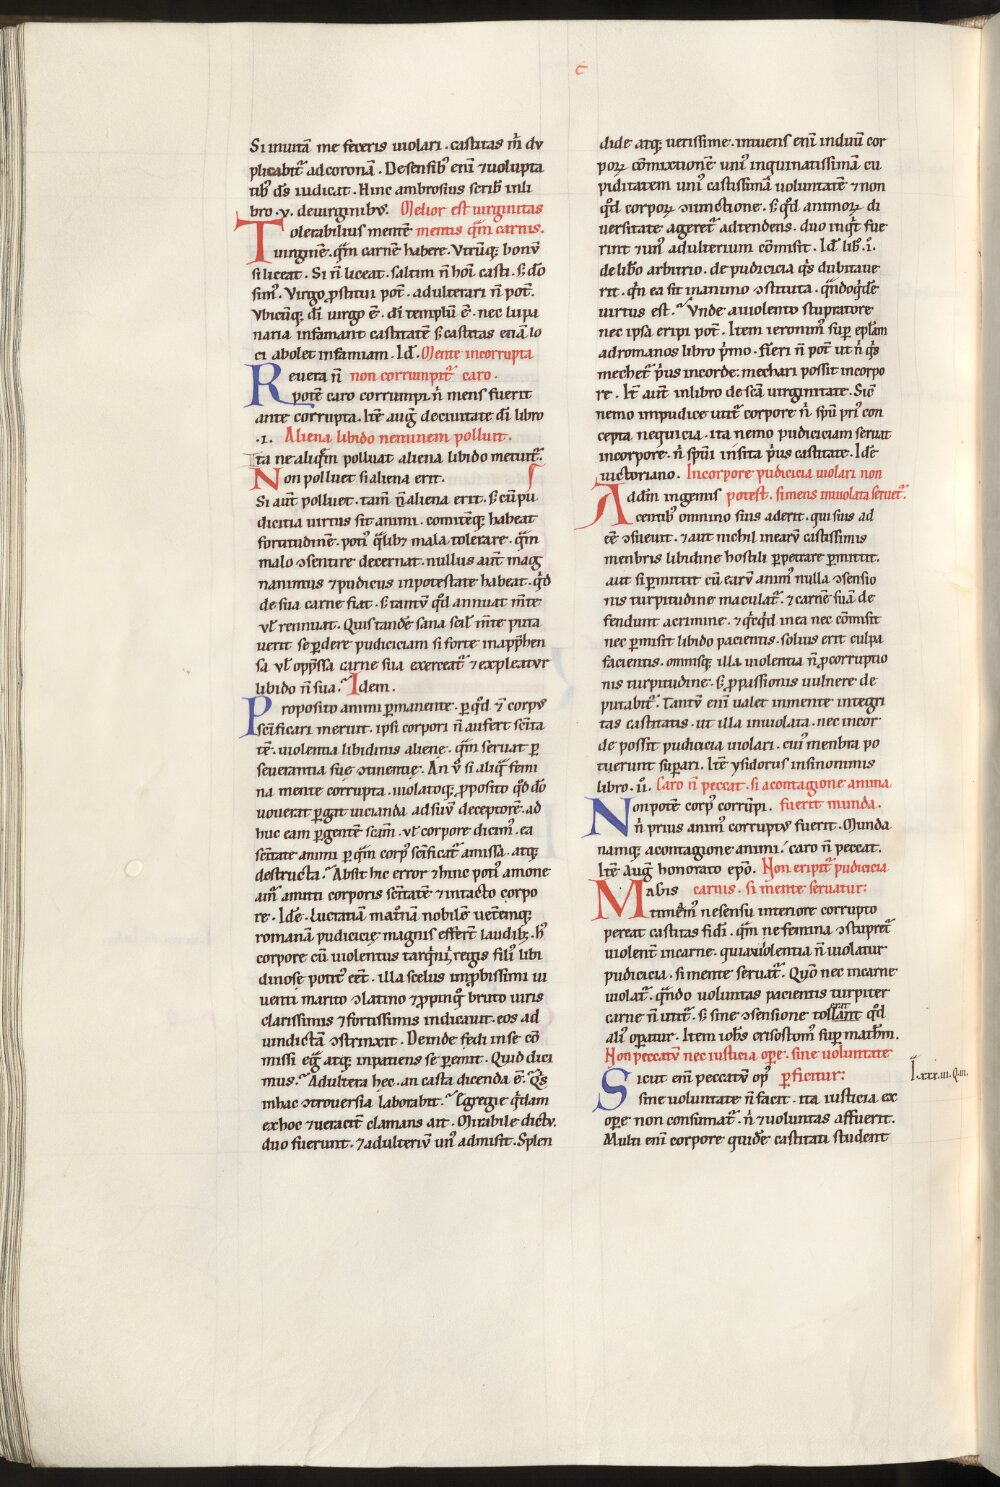 c
Si inuitā me feceris uiolari. castitas m̄ du
plicabit᷑ ad coronā. De sensib⁹ enī ⁊ uolupta
tib⁹ d̄s iudicat. Hinc ambrosius scrib̄ in li
bro .v. de uirginibus. Melior est uirginitas
Tolerabilius mentē mentis q̄m carnis.
uirginē. q̄m carnē habere. Vtrūq; bonū
si liceat. Si n̄ liceat. saltim n̄ hoī casti. s; dō
sim⁹. Virgo ꝓstitui pot̄. adulterari n̄ pot̄.
Vbicūq; dī uirgo ē. dī templū ē. nec lupa
naria infamant castitatē s; castitas etiā lo
ci abolet infamiam. Id̄. Mente incorrupta
Reuera n̄ non corrumpit᷑ caro.
potē caro corrumpi. n̄ mens fuerit
ante corrupta. Itē auḡ de ciuitate dī libro
.i. Aliena libido neminem polluit.
Ita ne aliq̄m polluat aliena libido metuit᷑.
Non polluet si aliena erit.
Si aūt polluet. tam̄ n̄ aliena erit. s; cū pu
dicitia uirtus sit animi. comitēq; habeat
fortitudinē. poti⁹ q̄lib; mala tolerare. q̄m
malo ↄsentire decernat. nullus aūt mag
nanimus ⁊ pudicus in potestate habeat. q̇d
de sua carne fiat. s; tantū q̇d annuat m̄te
ul̄ rennuat. Quis tandē sana scil̄ m̄te puta
uerit se ꝑdere pudiciciam si forte in app̄hen
sa ul̄ opp̄ssa carne sua exerceat᷑ ⁊ expleatur
libido n̄ sua. Idem.
Proposito animi ꝑmanente. ꝑ q̇d ⁊ corpus
sc̄ificari meruit. ipsi corpori n̄ aufert sc̄ita
tē. uiolentia libidinis aliene. q̄m seruat ꝑ
seuerantia sue ↄtinentie. An ū si aliq̄ femi
na mente corrupta. uiolatoq; ꝓposito q̇d dō
uouerat ꝑgat uicianda ad suū deceptorē. ad
huc eam ꝑgentē scām. ul̄ corpore dicim⁹. ea
sc̄itate animi ꝑ q̄m corp⁹ sc̄ificat᷑ amissa. atq;
destructa. Absit hic error ⁊ hinc poti⁹ amone
am⁹ amitti corporis sc̄itatē ⁊ intacto corpo
re. Idē. Lucratiam mat̄nā nobilē ueterēmq;
romanā pudicicię magnis effert laudib;. h⁹
corpore cū uiolentus tarq̇nii regis fili⁹ libi
dinose potit⁹ eēt. illa scelus imp̄bissimi iu
ueni marito ↄlatino ⁊ ꝓpinq̇ bruto uiris
clarissimis ⁊ fortissimis indicauit. eos ad
uindictā ↄstrinxit. Deinde fędi in se cō
missi eg̅ atq; inpatiens se ꝑemit. Quid dici
mus. Adultera hec. an casta dicenda ē. Q̇s
in hac ↄtrouersia laborabit. Egregie q̇dam
ex hoc ⁊ ueracit̄ clamans ait. Mirabile dictu.
duo fuerunt. ⁊ adulteriū un⁹ admisit. Splen
dide atq; uerissime. intuens enī in duū cor
poꝝ cōmixtionē uni⁹ inquinatissimā cu
piditatem uni⁹ castissimā uoluntatē ⁊ non
q̇d corpoꝝ ↄiunctione. s; q̇d animoꝝ di
uersitate ageret᷑ adtendens. duo inq̇t fue
runt ⁊ un⁹ adulterium cōmisit. Id̄ lib⁹.i.
de libō arbitrio. de pudicicia q̇s dubitaue
rit. q̇n ea sit in animo ↄstituta. q̄ndoq̇dē
uirtus est. Vnde a uiolento stupratore
nec ipsa eripi pot̄. Item ieronim⁹ sup̄ ep̄lam
ad romanos libro ṗmo. fieri n̄ pot̄ ut n̄ q̇s
mechet᷑ ṗus in corde. mechari possit in corpo
re. It̄ aūt in libro de sc̄a uirginitate. Sic̄
nemo impudice utit᷑ corpore n̄ sp̄u pri⁹ con
cepta nequicia. ita nemo pudiciciam seruat
in corpore. n̄ sp̄ui insita ṗus castitate. Idē
uictoriano. In corpore pudicicia uiolari non
Ad dm̄ ingemis potest. si mens inuiolata seruet᷑.
centib⁹ omnino suis aderit. qui suis ad
eē ↄsueuit. ⁊ aut nichil in earū castissimis
menbris libidine hostili ꝑpetrare ꝑmittit.
aut si ꝑmittit cū earū anim⁹ nulla ↄsensio
nis turpitudine maculat᷑. ⁊ carnē suā de
fendunt a crimine. ⁊ q̇cq̇d in ea nec cōmisit
nec ꝑmisit libido pacientis. solius erit culpa
facientis. omnisq; illa uiolentia n̄ ꝓ corruptio
nis turpitudine. s; ꝓ passionis uulnere de
putabit᷑. Tantū enī ualet in mente integri
tas castitatis. ut illa inuiolata. nec in cor
de possit pudicicia uiolari. cui⁹ menbra po
tuerunt sup̄ari. Itē ysidorus in sinonimis
libro .ii. Caro n̄ peccat. si a contagione anima
Non potē corp⁹ corrūpi. fuerit munda.
n̄ prius anim⁹ corruptus fuerit. Munda
namq; a contagione animi. caro n̄ peccat.
Itē Auḡ honorato epō. Non eripit᷑ pudicicia
Magis carnis. si mente seruatur:
timēm⁹ ne sensu interiore corrupto
pereat castitas fidī. q̄m ne femina ↄstupret᷑
uiolent̄ in carne. quia uiolentia n̄ uiolatur
pudicicia. si mente seruat᷑. Qūo nec in carne
uiolat᷑. q̄ndo uoluntas pacientis turpiter
carne n̄ utit᷑. s; sine ↄsensione tollerat q̇d
ali⁹ oꝑatur. Item ioh̄s crisostom⁹ sup̄ math̄m.
Non peccatū nec iusticia oꝑe. sine uoluntate
Sicut enī peccatū op⁹ ꝑficitur:
sine uoluntate n̄ facit. ita iusticia ex
oꝑe non consumat᷑. n̄ ⁊ uoluntas affuerit.
Multi enī corpore quidē castitati student
I. xxx.iii. Q.iii.